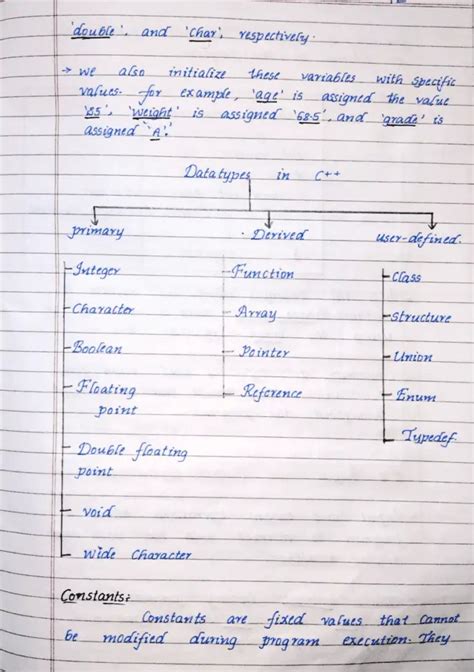 'double', and 'char', respectively.
→ we also initialize these variables with specific
values. for example, 'age' is assigned the value
'85', 'weight' is assigned '68.5', and 'grade' is
assigned 'A'.
Datatypes in C++
primary Derived user-defined.
Integer Function Class
Character Array Structure
Boolean Pointer Union
Floating Reference Enum
point
Typedef
Double floating
point
void
wide Character
Constants:
Constants are fixed values that cannot
be modified during program execution. They